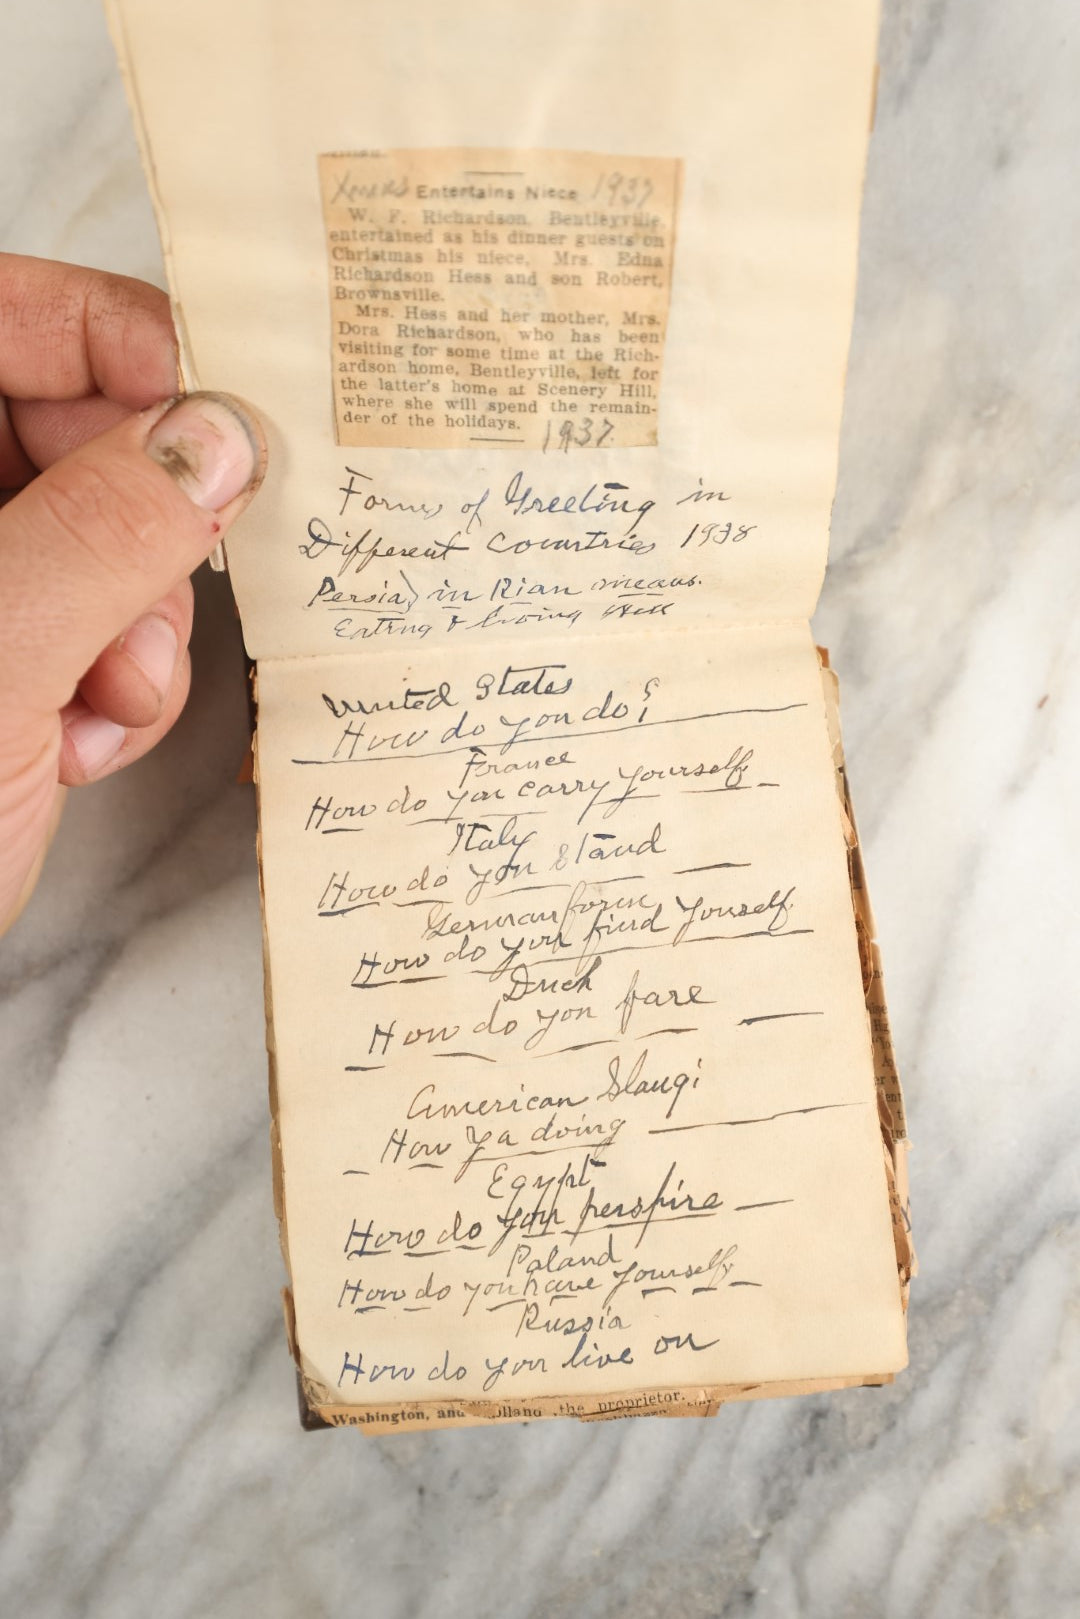 Xmas Entertains Niece 1937
W. F. Richardson, Bentleyville,
entertained as his dinner guests on
Christmas his niece, Mrs. Edna
Richardson Hess and son Robert,
Brownsville.
Mrs. Hess and her mother, Mrs.
Dora Richardson, who has been
visiting for some time at the Rich-
ardson home, Bentleyville, left for
the latter's home at Scenery Hill,
where she will spend the remain-
der of the holidays.
1937
Forms of Greeting in
Different Countries 1938
Persia) in Rian means.
Eating & living well
United States
How do you do?
France
How do you carry yourself
Italy
How do you stand
German form
How do you find youself.
Duch
How do you fare
American Slang;
How Ya doing
Egypt
How do you perspire
Poland
How do you have yourself
Russia
How do you live on
Washington, and olland the proprietor.